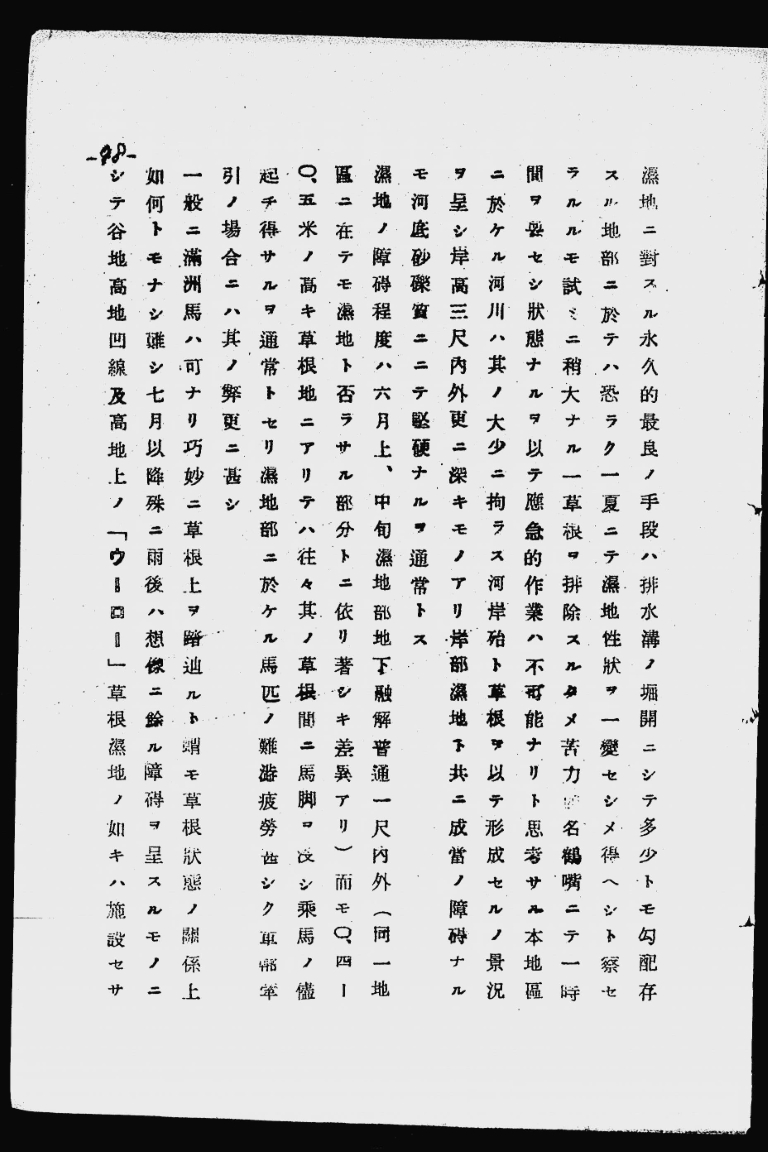 濕地ニ對スル永久的最良ノ手段ハ排水溝ノ堀開ニシテ多少トモ勾配存
スル地部ニ於テハ恐ラク一夏ニテ濕地性狀ヲ一變セシメ得ヘシト察セ
ラルルモ試ミニ稍大ナル一草根ヲ排除スルタメ苦力 名鶴嘴ニテ一時
間ヲ要セシ狀態ナルヲ以テ應急的作業ハ不可能ナリト思考サル本地區
ニ於ケル河川ハ其ノ大少ニ拘ラス河岸殆ト草根ヲ以テ形成セルノ景況
ヲ呈シ岸高三尺內外更ニ深キモノアリ岸部濕地ト共ニ成當ノ障碍ナル
モ河底砂礫質ニニテ堅硬ナルヲ通常トス
濕地ノ障碍程度ハ六月上、中旬濕地部地下融解普通一尺內外(同一地
區ニ在テモ濕地ト否ラサル部分トニ依リ著シキ差異アリ)而モ〇、四ー
〇、五米ノ高キ草根地ニアリテハ往々其ノ草根間ニ馬脚ヲ沒シ乘馬ノ儘
起チ得サルヲ通常トセリ濕地部ニ於ケル馬匹ノ難澁疲勞甚シク車輛牽
引ノ場合ニハ其ノ弊更ニ甚シ
一般ニ滿洲馬ハ可ナリ巧妙ニ草根上ヲ踏辿ルト雖モ草根狀態ノ關係上
如何トモナシ難シ七月以降殊ニ雨後ハ想像ニ餘ル障碍ヲ呈スルモノニ
シテ谷地高地凹線及高地上ノ「ウーローー」草根濕地ノ如キハ施設セサ
-98-